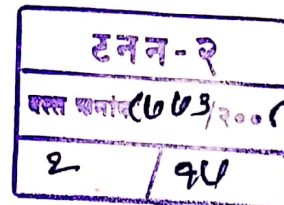 टनन-२
दस्त क्रमांक ८७७३/२००८
२ / १५